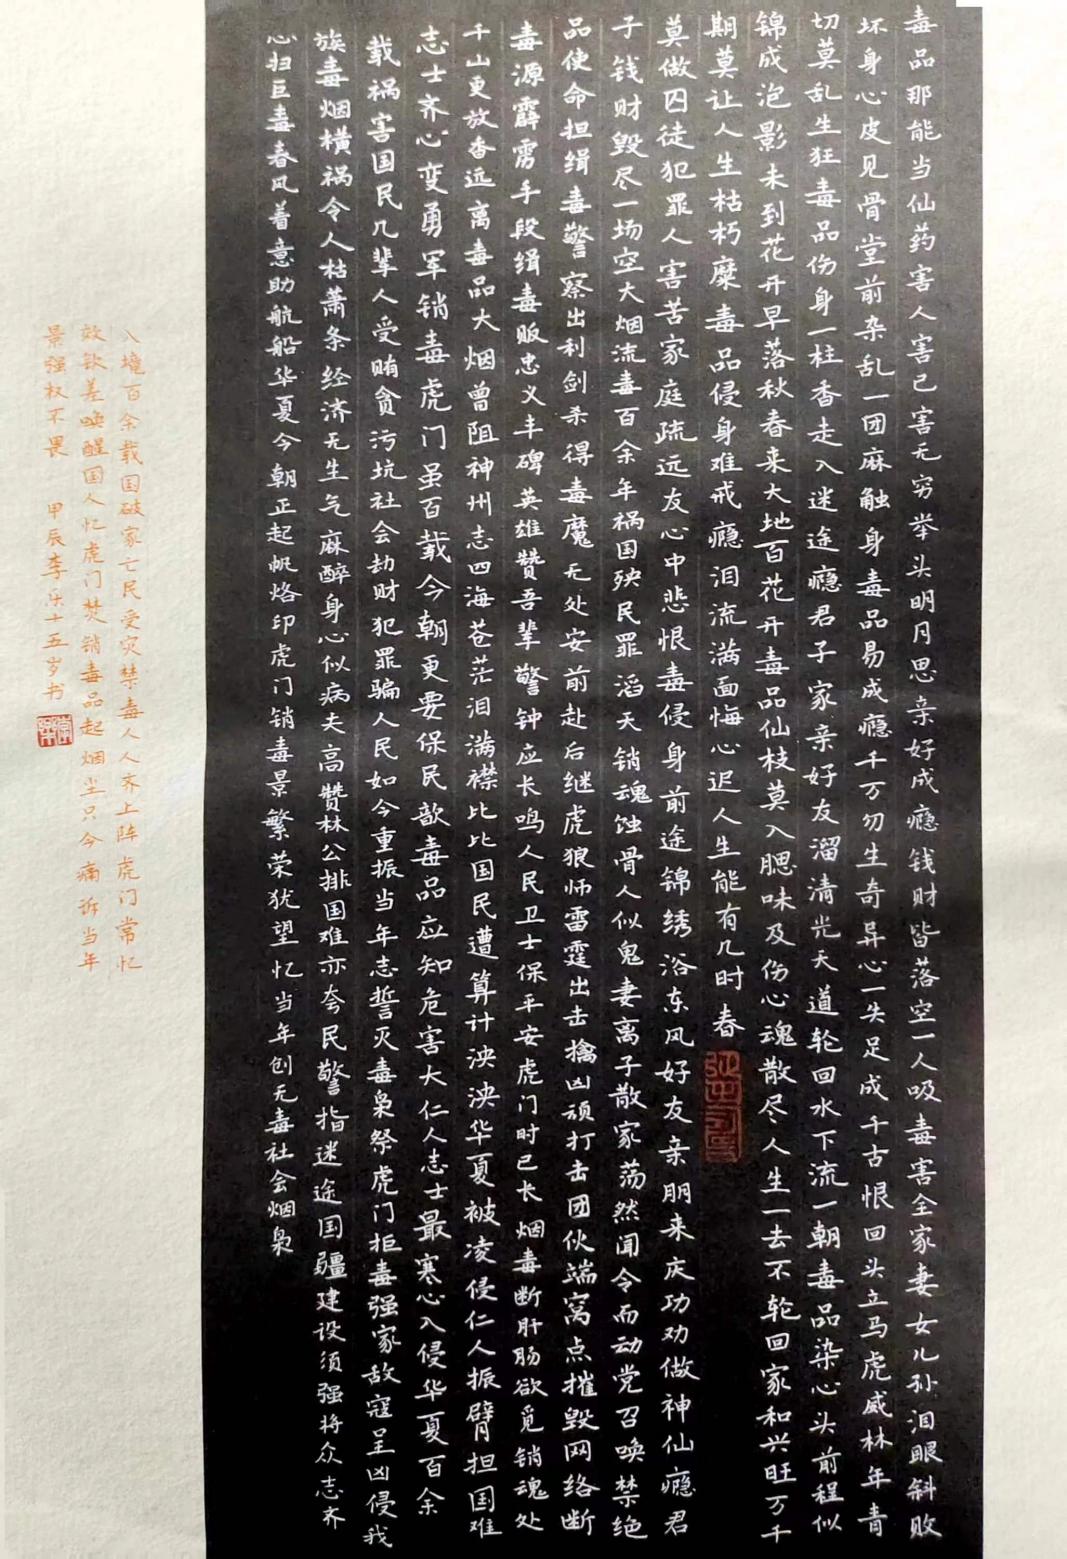 毒品那能当仙药害人害己害无穷举头明月思亲好成瘾钱财皆落空一人吸毒害全家妻女儿孙泪眼斜败
坏身心皮见骨堂前杂乱一团麻触身毒品易成瘾千万勿生奇异心一失足成千古恨回头立马虎威林年青
切莫乱生狂毒品伤身一柱香走入迷途瘾君子家亲好友溜清光天道轮回水下流一朝毒品染心头前程似
锦成泡影未到花开早落秋春来大地百花开毒品仙枝莫入腮味及伤心魂散尽人生一去不轮回家和兴旺万千
期莫让人生枯朽糜毒品侵身难戒瘾泪流满面悔心迟人生能有几时春
莫做囚徒犯罪人害苦家庭疏远友心中悲恨毒侵身前途锦绣浴东风好友亲朋来庆功劝做神仙瘾君
子钱财毁尽一场空大烟流毒百余年祸国殃民罪滔天销魂蚀骨人似鬼妻离子散家荡然闻令而动党召唤禁绝
品使命担缉毒警察出利剑杀得毒魔无处安前赴后继虎狼师雷霆出击擒凶顽打击团伙端窝点摧毁网络断
毒源霹雳手段缉毒贩忠义丰碑英雄赞吾辈警钟应长鸣人民卫士保平安虎门时已长烟毒断肝肠欲觅销魂处
千山更放香远离毒品大烟曾阻神州志四海苍茫泪满襟比比国民遭算计泱泱华夏被凌侵仁人振臂担国难
志士齐心变勇军销毒虎门虽百载今朝更要保民歆毒品应知危害大仁人志士最寒心入侵华夏百余
载祸害国民几辈人受贿贪污坑社会劫财犯罪骗人民如今重振当年志誓灭毒枭祭虎门拒毒强家敌寇呈凶侵我
族毒烟横祸令人枯萧条经济无生气麻醉身心似病夫高赞林公排国难亦夸民警指迷途国疆建设须强将众志齐
心扫巨毒春风着意助航船华夏今朝正起帆烙印虎门销毒景繁荣犹望忆当年创无毒社会烟枭
入境百余载国破家亡民受灾禁毒人人齐上阵虎门常忆
效钦差唤醒国人忆虎门焚销毒品起烟尘只今痛诉当年
景强权不畏 甲辰李乐十五岁书